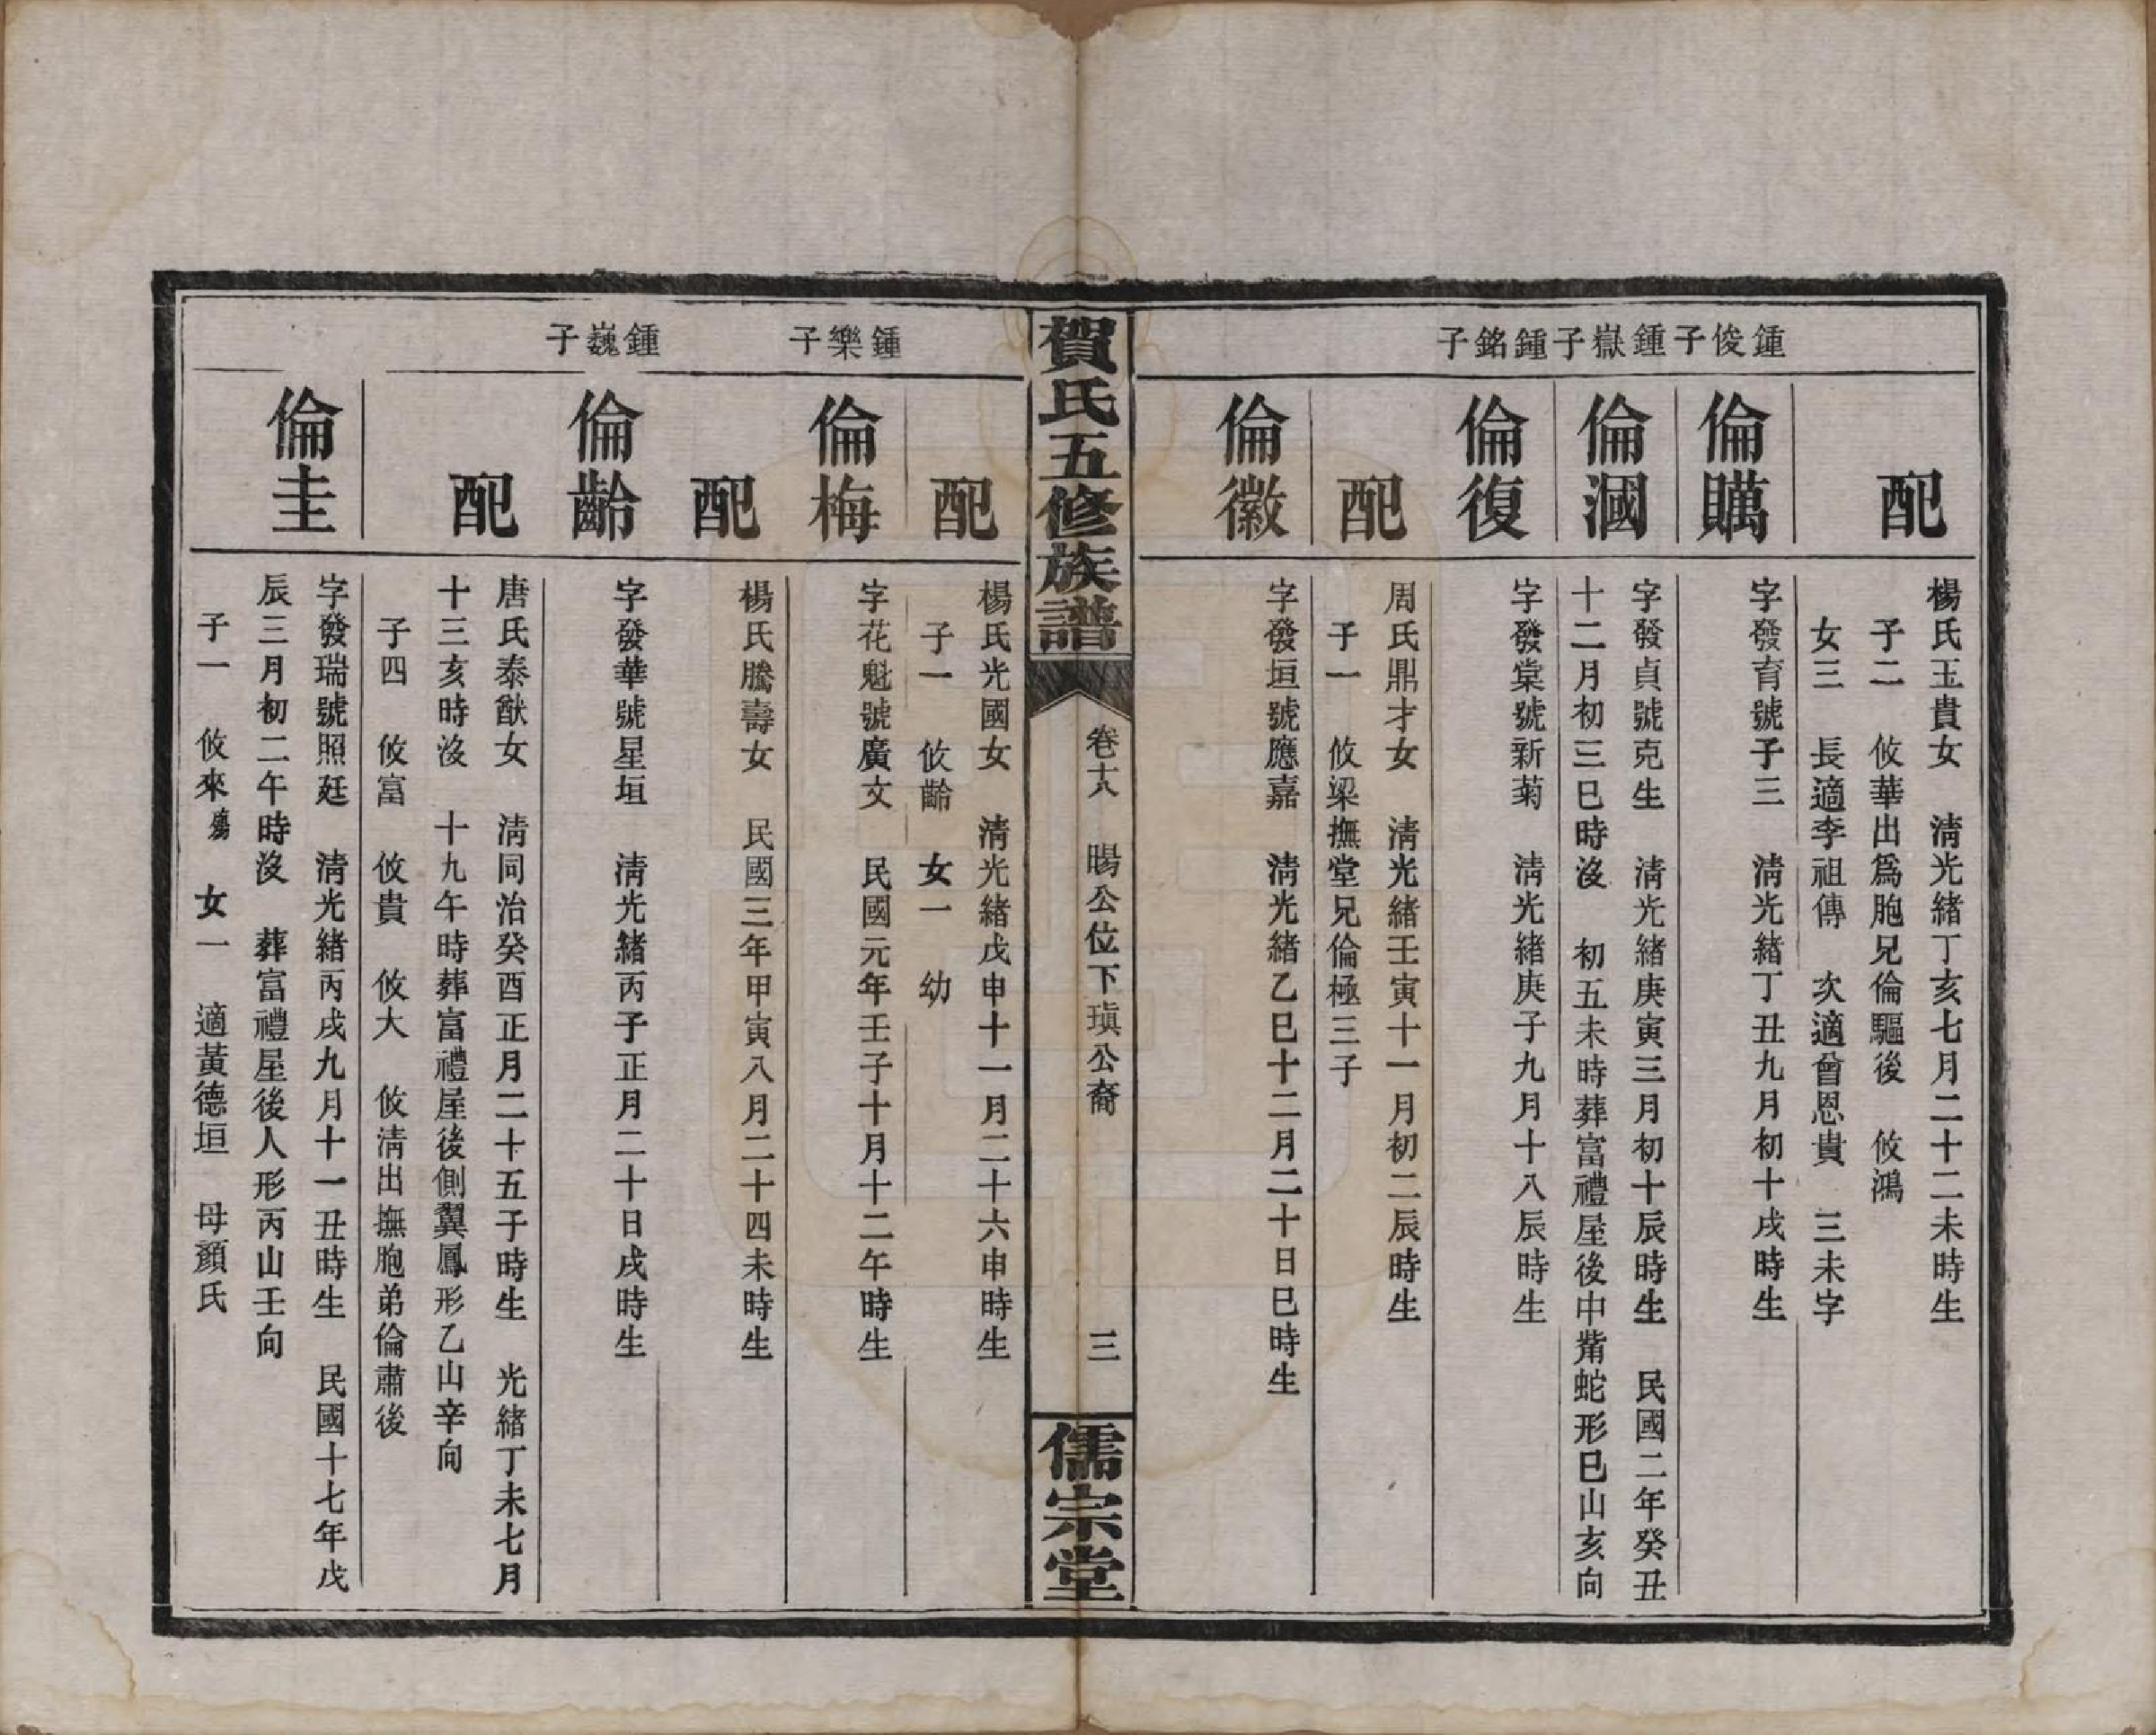 鍾俊子
鍾嶽子
鍾銘子
配
楊氏玉貴女　淸光緒丁亥七月二十二未時生
子二　攸華出爲胞兄倫驅後　攸鴻
女三　長適李祖傳　次適曾恩貴　三未字
倫贎
字發育號子三　淸光緒丁丑九月初十戌時生
倫漍
字發貞號克生　淸光緒庚寅三月初十辰時生　民國二年癸丑
十二月初三巳時沒　初五未時葬富禮屋後中觜蛇形巳山亥向
倫復
字發棠號新菊　淸光緒庚子九月十八辰時生
配
周氏鼎才女　淸光緒壬寅十一月初二辰時生
子一　攸梁撫堂兄倫極三子
倫徽
字發垣號應嘉　淸光緒乙巳十二月二十日巳時生
賀氏五修族譜
卷十八　暘公位下瑱公裔　三
儒宗堂
鍾樂子
鍾巍子
配
楊氏光國女　淸光緒戊申十一月二十六申時生
子一　攸齡　女一　幼
倫梅
字花魁號廣文　民國元年壬子十月十二午時生
配
楊氏騰壽女　民國三年甲寅八月二十四未時生
倫齡
字發華號星垣　淸光緒丙子正月二十日戌時生
配
唐氏泰猷女　淸同治癸酉正月二十五子時生　光緒丁未七月
十三亥時沒　十九午時葬富禮屋後側翼鳳形乙山辛向
子四　攸富　攸貴　攸大　攸淸出撫胞弟倫肅後
倫圭
字發瑞號照廷　淸光緒丙戌九月十一丑時生　民國十七年戊
辰三月初二午時沒　葬富禮屋後人形丙山壬向
子一　攸來殤　女一　適黃德垣　母顏氏